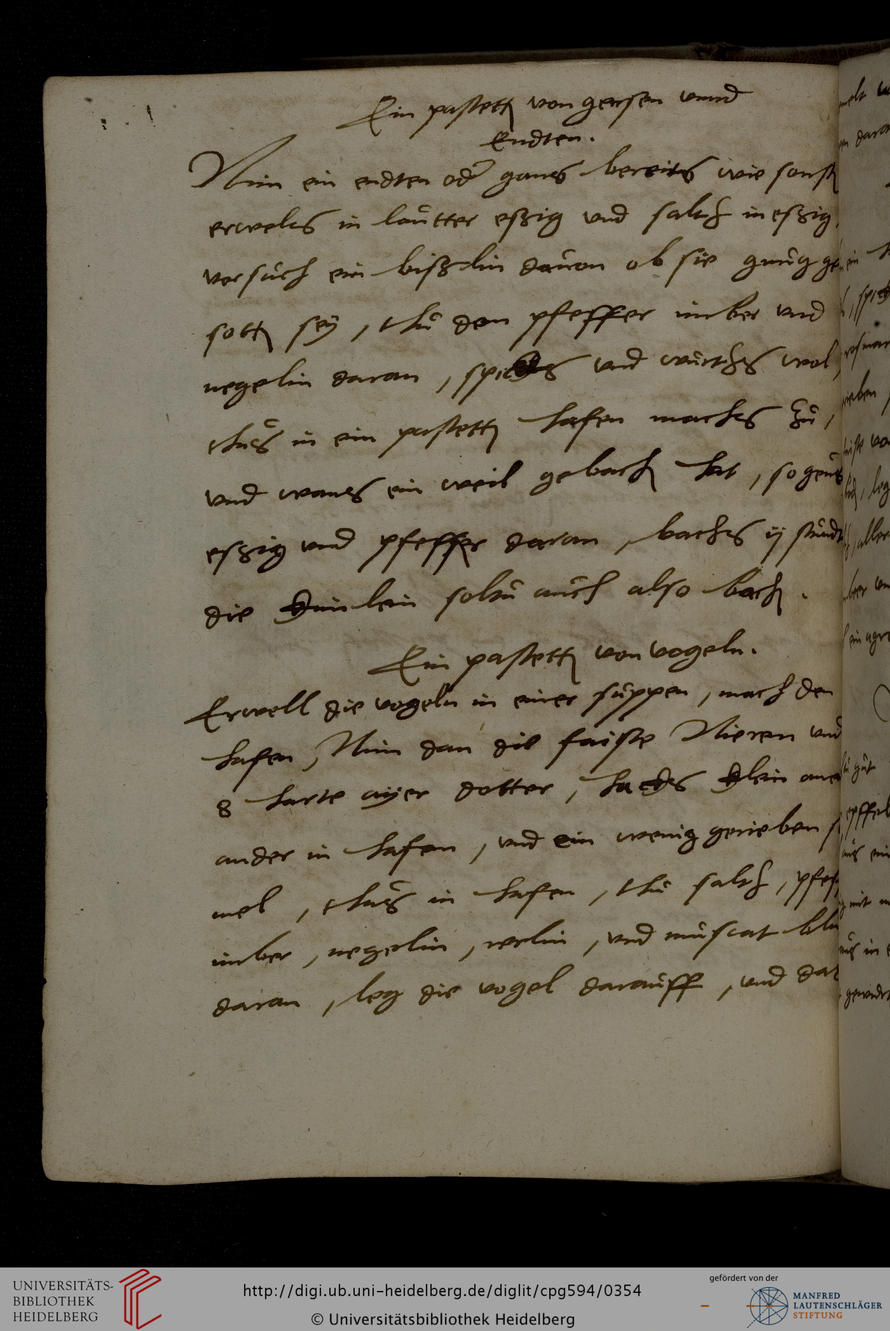 Ein pastetten von gensen vnnd
Endten.
Nim ein endten oder gans bereits wie sonst
erwels in lautter essig vnd saltz in essig,
versuch ein bisslin dauon ob sie gnug ge
sotten sey, thu den pfeffer imber vnd
negelin daran, spicks vnd würtzs wol,
thus in ein pastetten hafen machs zu,
vnd wans ein weil gebachen hat, so geus
essig vnd pfeffer daran, bachs ij stund
die hünlein soltu auch also bachen.
Ein pastetten von vogeln.
Erwell die vogeln in einer suppen, mach den
hafen, Nim dan die faiste Nieren vnd
8 harte ayer dotter, hacks klein
ander in hafen, vnd ein wenig gerieben
mel, thus in hafen, thu saltz, pfef
imber, negelin, , vnd muscat blu
daran, leg die vogel darauff, vnd dar
UNIVERSITÄTS-
BIBLIOTHEK
HEIDELBERG
http://digi.ub.uni-heidelberg.de/diglit/cpg594/0354
© Universitätsbibliothek Heidelberg
gefördert von der
MANFRED
LAUTENSCHLÄGER
STIFTUNG